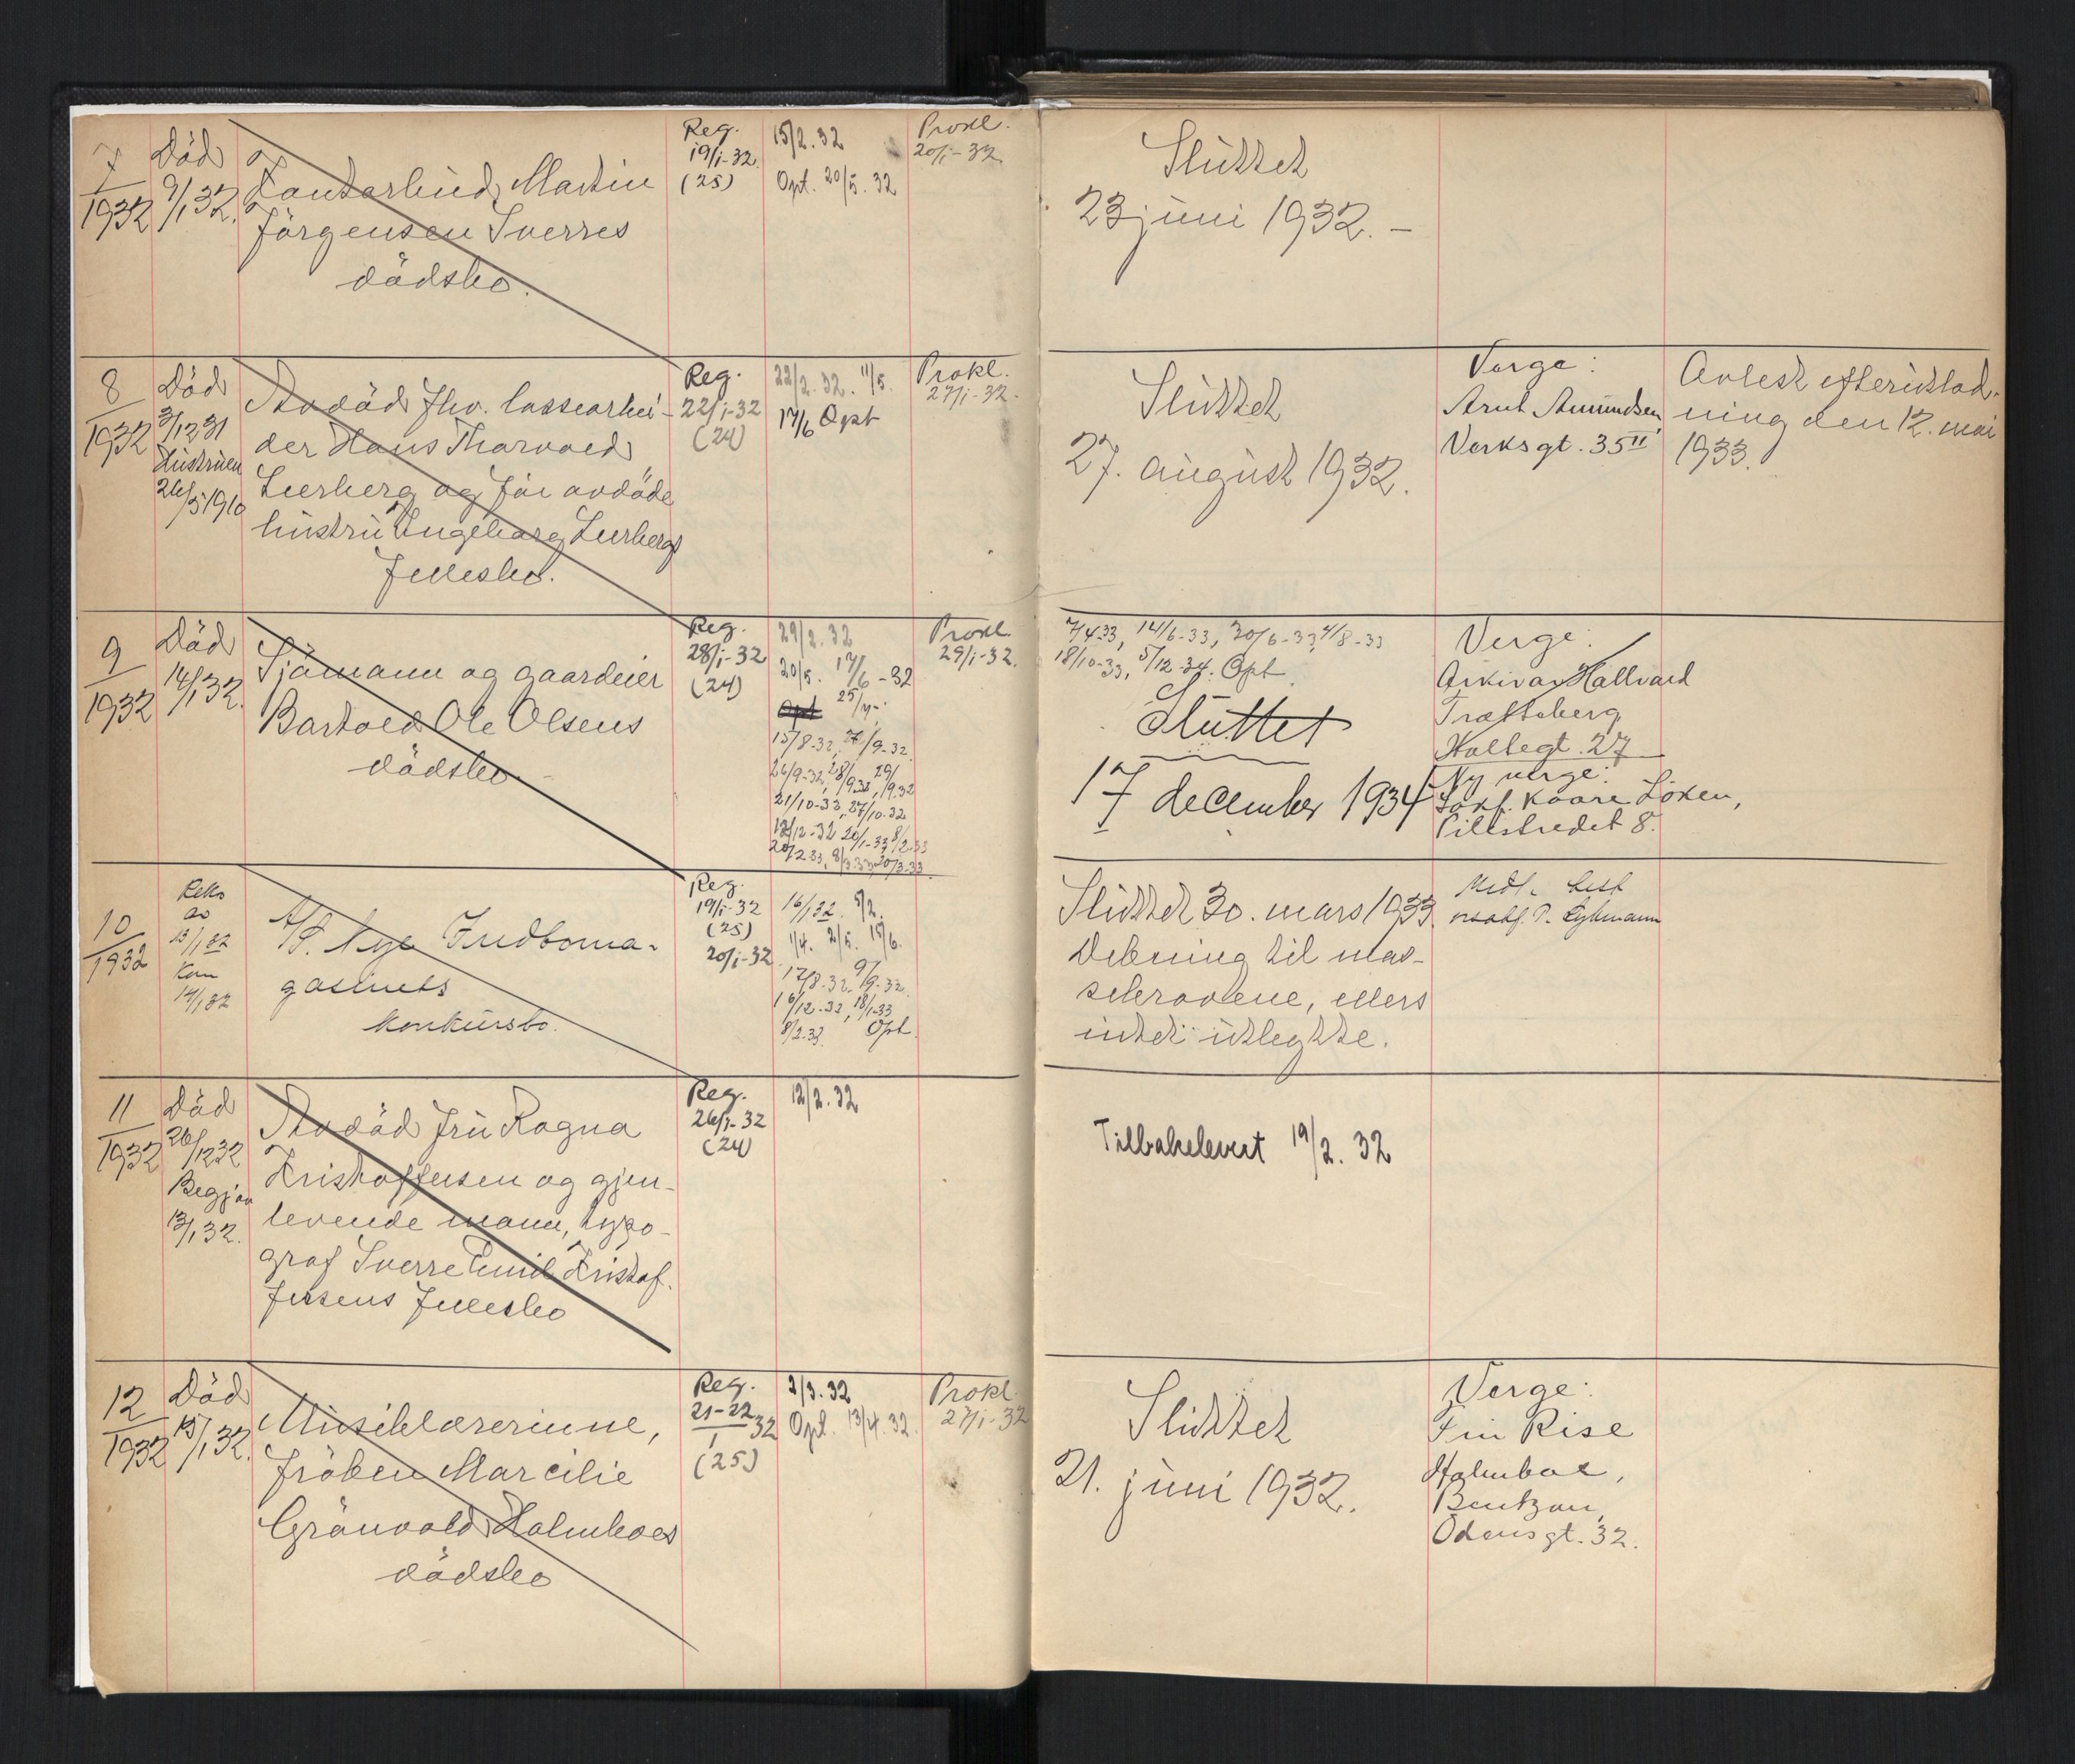 7/1932
Död
9/1 32.
Kontorbud Martin
Jörgensen Sverres
dödsbo.
Reg.
19/1-32.
(25)
15/2.32
Opt. 20/5.32
Prokl.
20/1-32.
Sluttet
23 juni 1932. –
8/1932
Död
3/12 31
Hustruen
26/5 1910
Avdöd fhv. lossearbei-
der Hans Thorvald
Lierberg og før avdöde
hustru Ingeborg Lierbergs
fellesbo.
Reg.
22/1-32
(24)
22/2.32. 11/5.
17/6 Opt
Prokl.
27/1-32.
Sluttet
27. august 1932.
Verge:
Arnt Amundsen,
Verksgt. 35 II
Avlest efterutlod-
ning den 12. mai
1933.
9/1932
Död
14/1 32.
Sjömann og gaardeier
Bartold Ole Olsens
dödsbo.
Reg.
28/1-32
(24)
29/2.32
20/5. 17/6-32
Opt 25/7-
15/8-32, /9-32
26/9-32, 28/9.32, 29/9.32
21/10-32, 27/10.32
12/12-32 20/1-33, 8/2.33
20/2 33, 8/3.33 20/3-33
Prokl
29/1-32.
7/4-33, 14/6-33, 20/6-33, 4/8-33
18/10-33, 5/12-34. Opt.
Sluttet
17 december 1934
Verge:
Arkivar Hallvard
Trætteberg
Holtegt. 27
Ny verge:
Kaare Löken,
Pilestredet 8.
10/1932
Reko
ao
15/1 32
Kon
14/1 32
A/S. Nye Indboma-
gasinets
konkursbo.
Reg.
19/1-32
(25)
20/1-32
16/1 32. 5/2.
1/4. 2/5. 15/6.
17/8-32. 9/9-32
16/12-32, 18/1-33
8/2-33. Opt.
Sluttet 30. mars 1933.
Dekning til mas-
sekravene, ellers
intet utlegtte.
Midl. best
11/1932
Död
26/12 32
Begj. av
13/1 32.
Avdöd fru Ragna
Kristoffersen og gjen-
levende mann, typo-
graf Sverre Emil Kristof-
fersens fellesbo
Reg.
26/1-32
(24)
12/2.32
Tilbakelevert 19/2. 32
12/1932
Död
15/1 32.
Musiklærerinne,
fröken Marcilie
Grönvold Holmboes
dödsbo
Reg.
21-22/1 32
(25)
2/3.32
Opt. 13/4.32.
Prokl.
27/1-32
Sluttet
21. juni 1932.
Verge:
Frü Rise
Holmboe,
Bentzon,
Odensgt. 32.